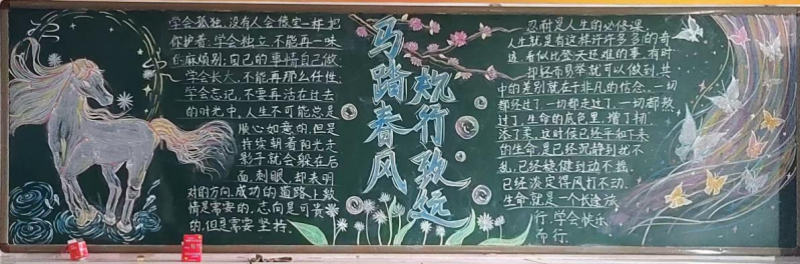 学会孤独,没有人会像宝一样把
你护着,学会独立,不能再一味
麻烦别,自己的事情自己做;
学会长大,不能再那么任性;
学会忘记,不要再活在过去
的时光中,人生不可能总是
顺心如意的,但是
持续朝着阳光走
影子就会躲在后
面,刺眼,却表明
对的方向,成功的道路上毅
情是需要的,志向是可贵
的,但是需要坚持。
马踏春风
执行致远
忍耐是人生的必修课
人生就是有这样许许多多的奇
迹,看似比登天还难的事,有时
却轻而易举就可以做到,其
中的差别就在于非凡的信念,一切
都经过了,一切都走过了,一切都熬
过了,生命的底色里,增了韧,
添了柔,这时候已经平和下来
的生命,是已经沉静到扰不
乱,已经稳健到动不摇,
已经淡定得风打不动,
生命就是一个长途旅
行,学会快乐
而行.